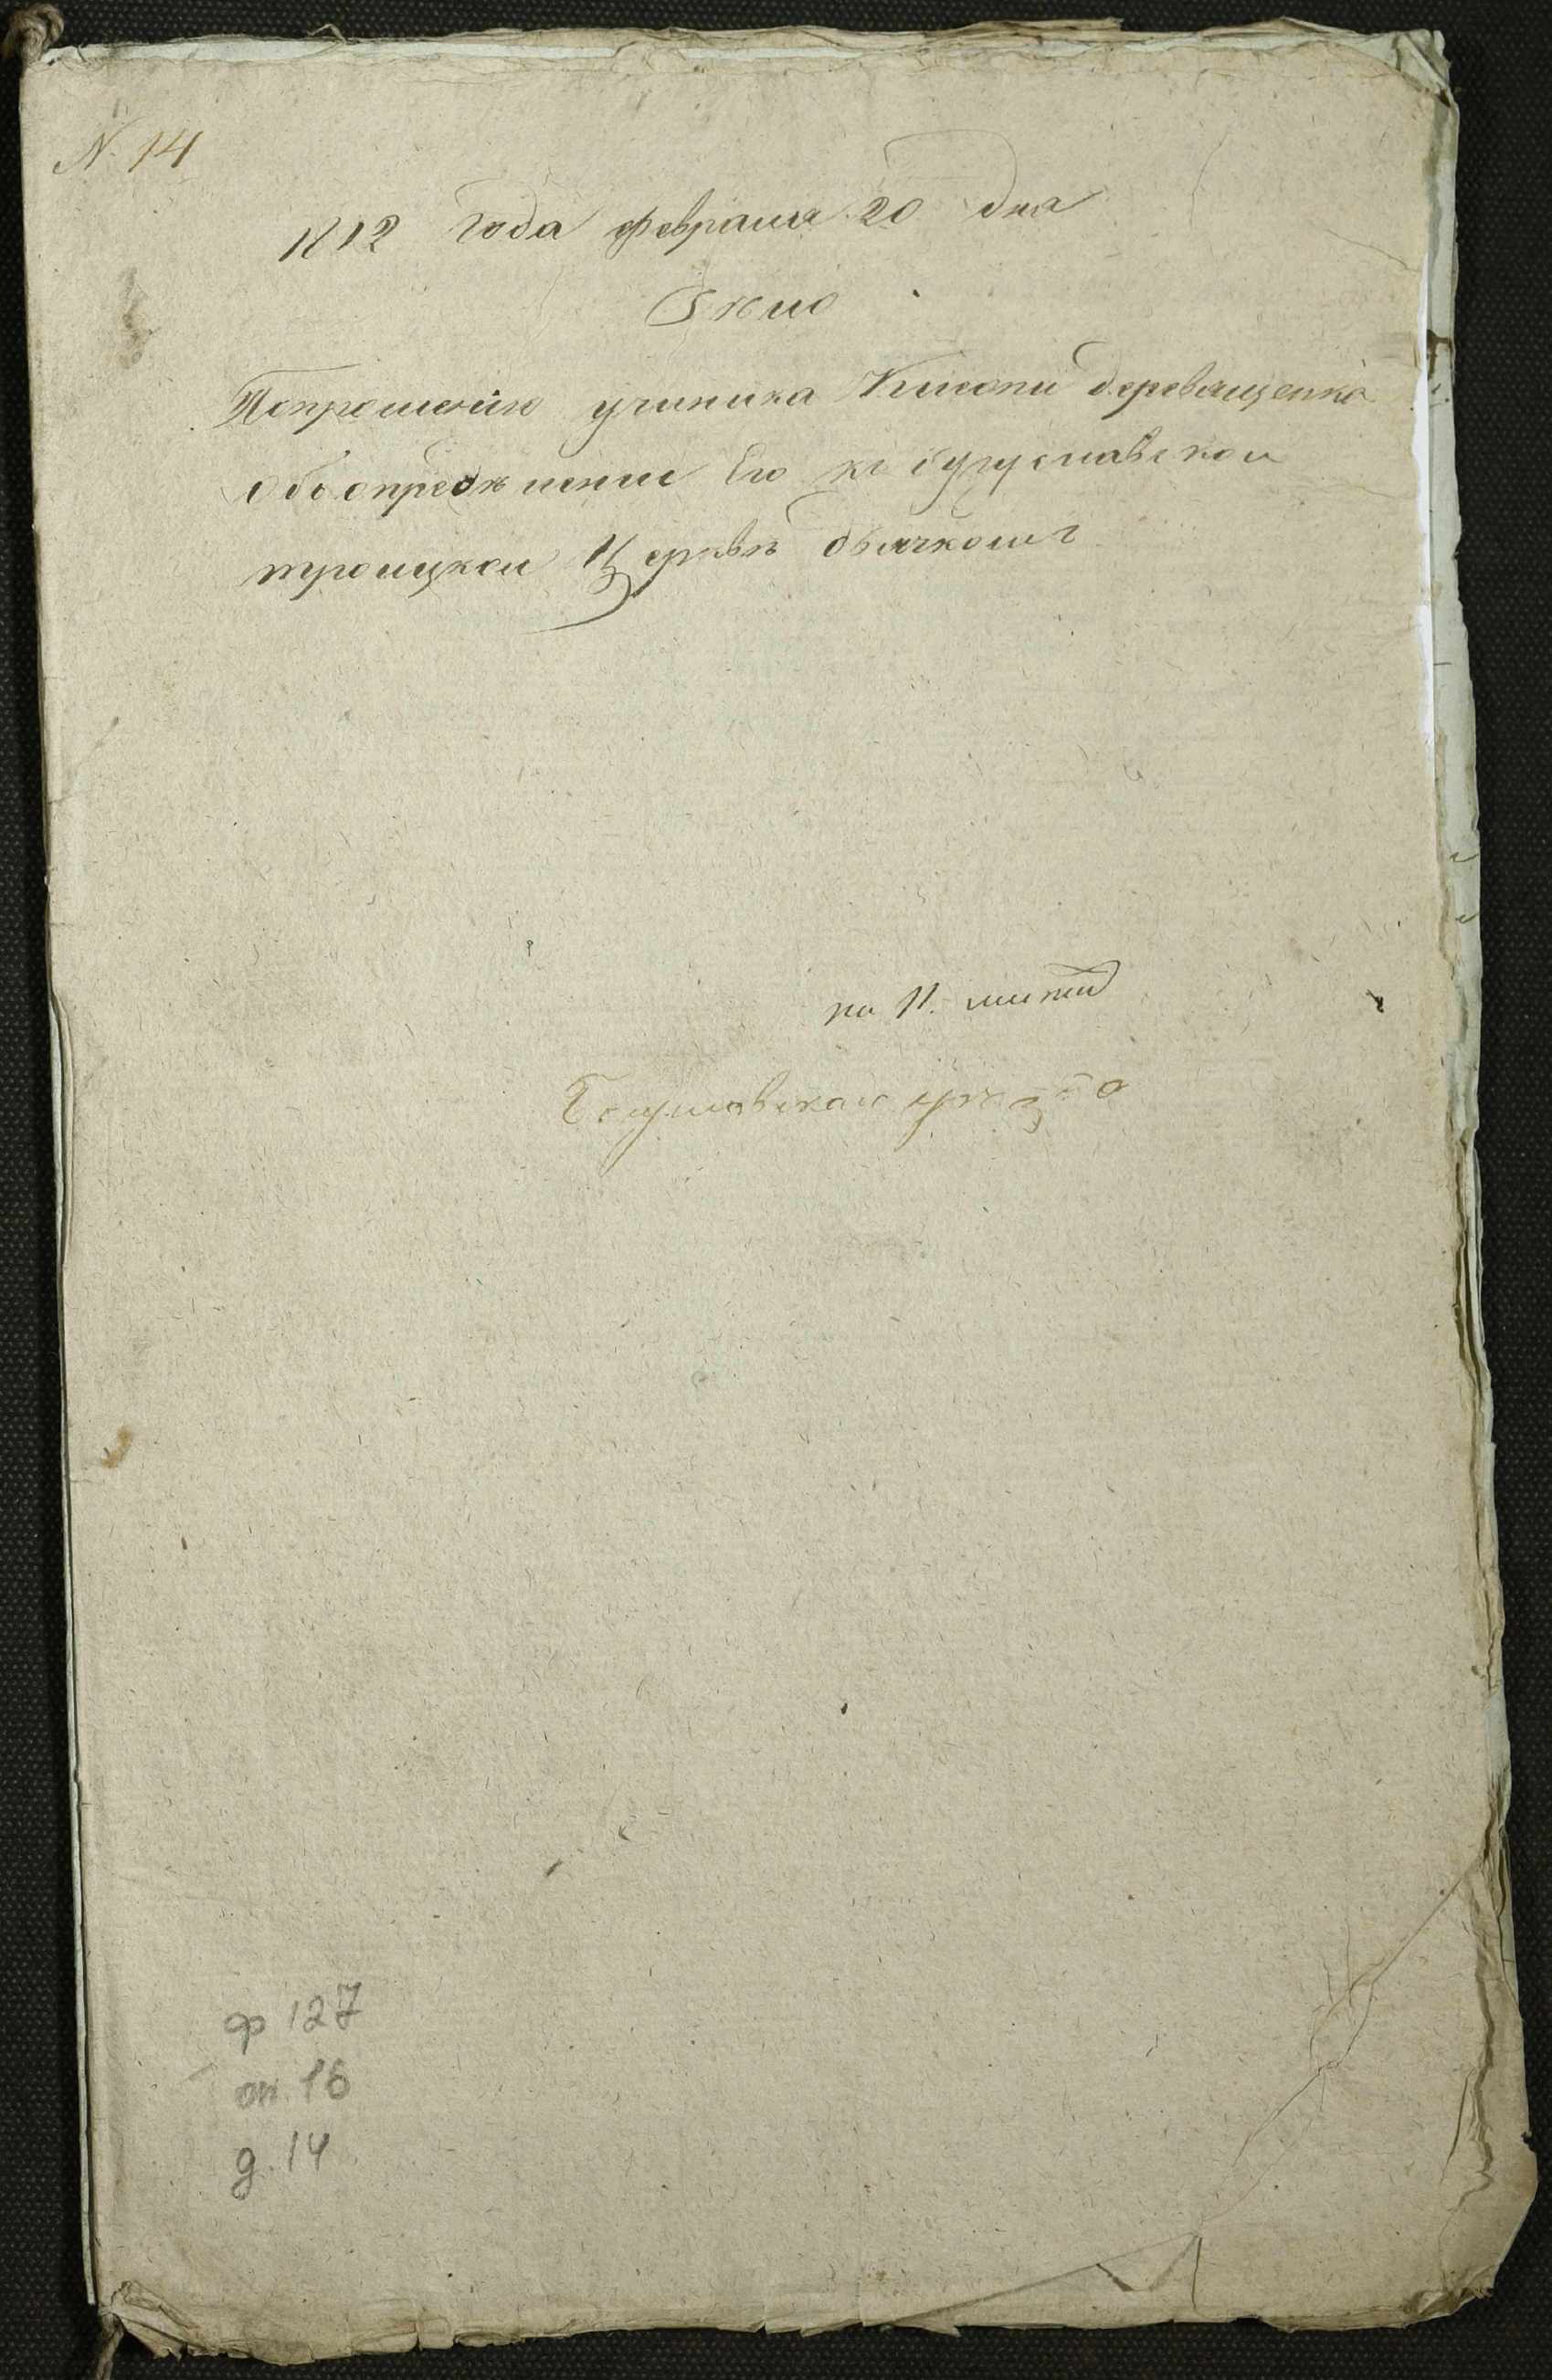 N. 14
1812 года февраля 20 дня
Дѣло
Попрошенію ученика дереващенка
Обь опредѣлении Его къ
троицкой Церквѣ дьячкомъ
на 11. листа
Богуславскаго уѣзда
ф 127
оп. 16
д. 14